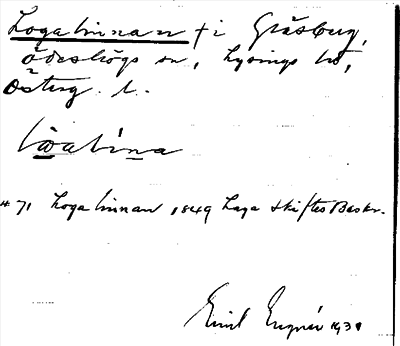 Logalinnan † i Gräsberg,
Ödeshögs sn, Lysings hd,
Österg. l.
# 71 Logalinnan 1849 Laga skiftes Beskr.
Emil 1930